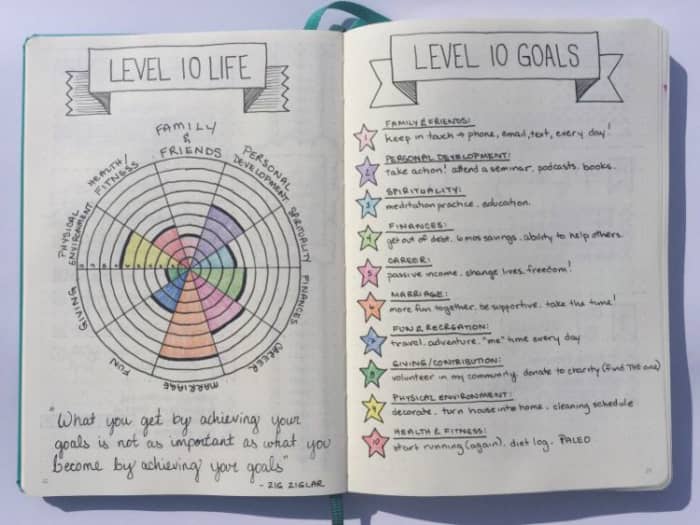 LEVEL 10 LIFE
FAMILY
&
FRIENDS
PERSONAL
DEVELOPMENT
SPIRITUALITY
FINANCES
CAREER
MARRIAGE
FUN
GIVING
PHYSICAL
ENVIRONMENT
HEALTH/
FITNESS
"What you get by achieving your
goals is not as important as what you
become by achieving your goals"
- ZIG ZIGLAR
LEVEL 10 GOALS
1 FAMILY & FRIENDS:
keep in touch → phone, email, text, every day!
2 PERSONAL DEVELOPMENT:
take action! attend a seminar. podcasts. books.
3 SPIRITUALITY:
meditation practice. education.
4 FINANCES:
get out of debt. 6 mos savings. ability to help others.
5 CAREER:
passive income. change lives. freedom!
6 MARRIAGE:
more fun together. be supportive. take the time!
7 FUN & RECREATION:
travel. adventure. "me" time every day
8 GIVING/CONTRIBUTION:
volunteer in my community. donate to charity (find the one)
9 PHYSICAL ENVIRONMENT:
decorate. turn house into home. cleaning schedule
10 HEALTH & FITNESS:
start running (again). diet log. PALEO